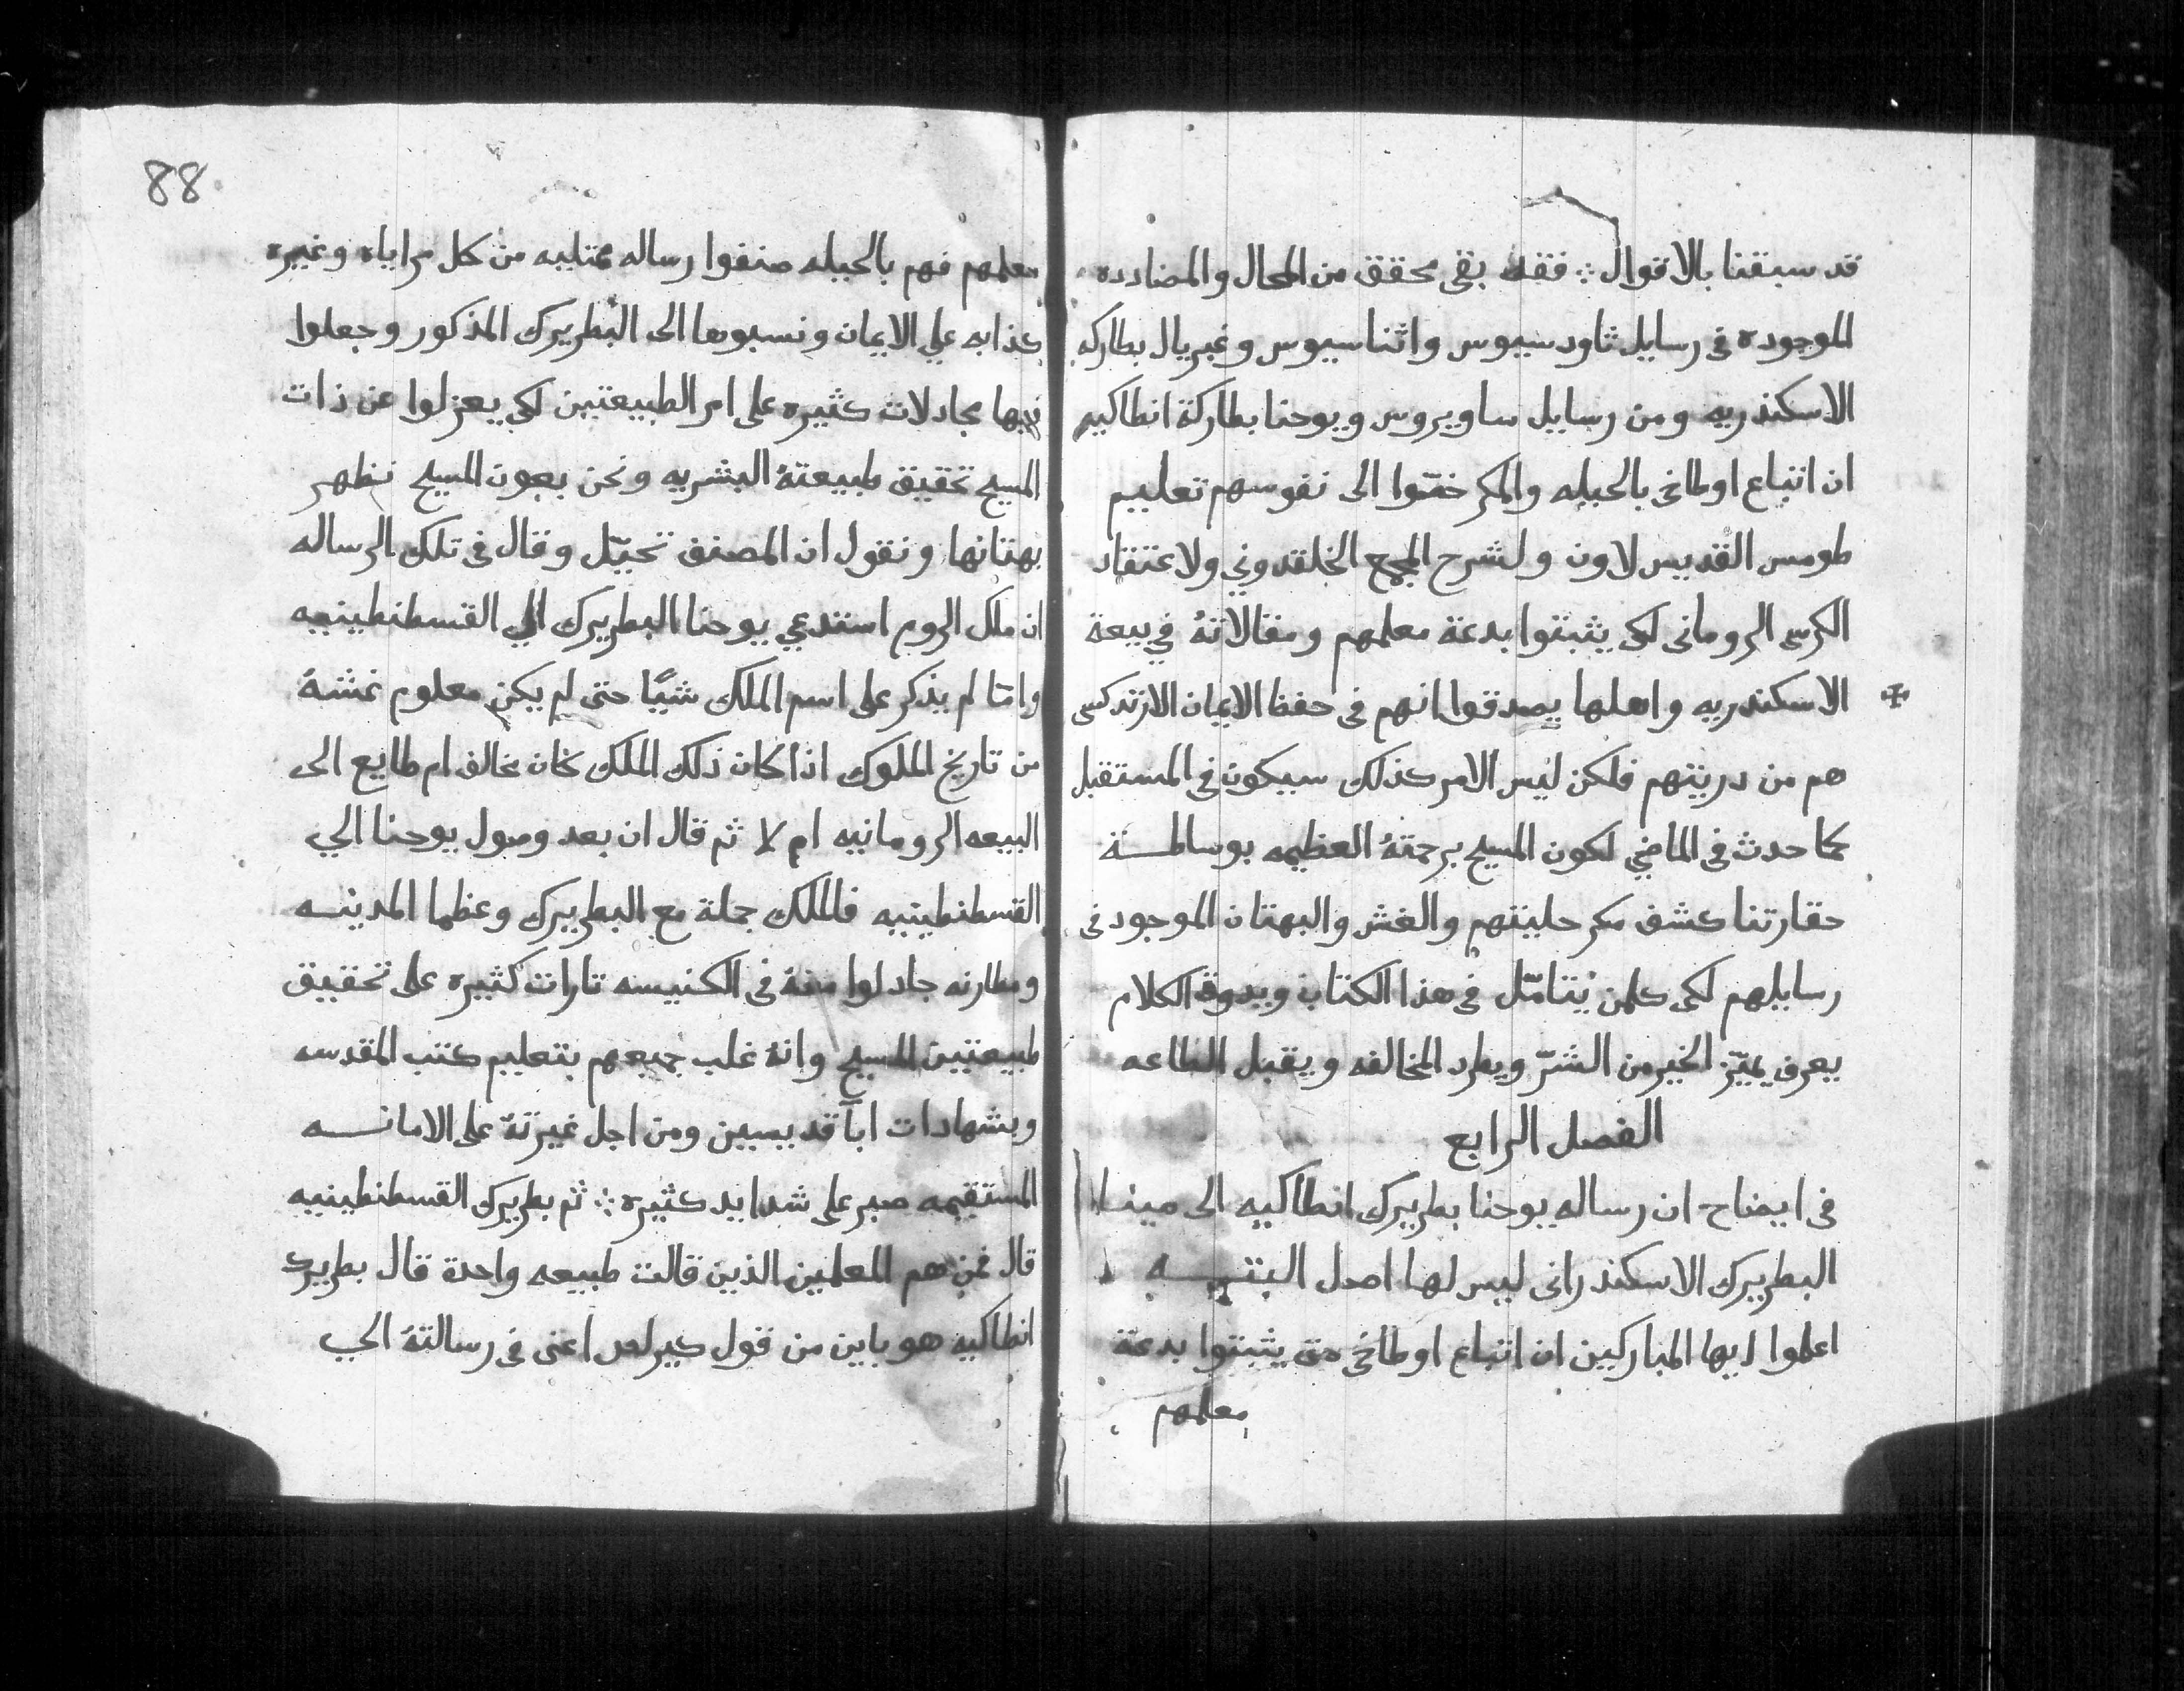 قد سبقنا بالاقوال ⁘ فقد بقى محقق من المحال والمضادده
الموجوده فى رسايل ثاودسيوس واثناسيوس وغبريال بطاركه
الاسكندريه ومن رسايل ساويروس ويوحنا بطاركة انطاكيه
ان اتباع اوطاخى بالحيله والمكر ختموا الى نفوسهم تعليم
طومس القديس لاون ولشرح المجمع الخلقدوني ولاعتقاد
الكرسى الرومانى لكى يثبتوا بدعة معلمهم ومقالاتهُ في بيعة
الاسكندريه واهلها يصدقوا انهم فى حفظ الايمان الارتدكسى
هم من دريتهم فلكن ليس الامر كذلك سيكون فى المستقبل
كما حدث فى الماضي لكون المسيح برحمتهُ العظيمه بوساطـــة
حقارتنا كشف مكر حليتهم والغش والبهتان الموجود فى
رسايلهم لكى كلمن يتامّل فى هذا الكتاب ويدوق الكلام
يعرف يميّز الخير من الشرّ ويطرد المخالفه ويقبل الطاعه
الفصل الرابع
فى ايضاح ان رساله يوحنا بطريرك انطاكيه الى مينا
البطريرك الاسكندرانى ليس لها اصل البتـــه
اعلموا ايها المباركين ان اتباع اوطاخى متى يثبتوا بدعة
معلمهم
88
معلمهم فهم بالحيله صنفوا رساله ممتليه من كل مراياه وغيره
كذابه علي الايمان ونسبوها الى البطريرك المذكور وجعلوا
فيها مجادلات كثيره على امر الطبيعتين لكى يعزلوا عن ذات
المسيح تحقيق طبيعتهُ البشريه ونحن بعون المسيح نظهر
بهتانها ونقول ان المصنف تحيّل وقال فى تلك الرساله
ان ملك الروم استدعي يوحنا البطريرك الي القسطنطينيه
وامّا لم يذكر على اسم الملك شيًا حتى لم يكن معلوم غشهُ
من تاريخ الملوك اذا كان ذلك الملك كان مخالف ام طايع الى
البيعه الرومانيه ام لا ثم قال ان بعد وصول يوحنا الي
القسطنطينيه فالملك جملة مع البطريرك وعظما المدينـــه
ومطارنه جادلوا منهُ فى الكنيسه تارات كثيره على تحقيق
طبيعتين المسيح وانهُ غلب جميعهم بتعليم كتب المقدسه
وبشهادات ابآ قديسين ومن اجل غيرتهُ على الامانـــه
المستقيمه صبر على شدايد كثيره ⁘ ثم بطريرك القسطنطينيه
قال فمن هم المعلمين الذين قالت طبيعه واحدة قال بطريرك
انطاكيه هو باين من قول كيرلص اعنى فى رسالتهُ الي